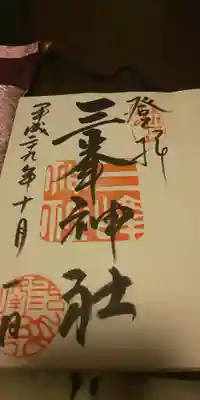 登拝
三峯神社
平成二九年十月一日